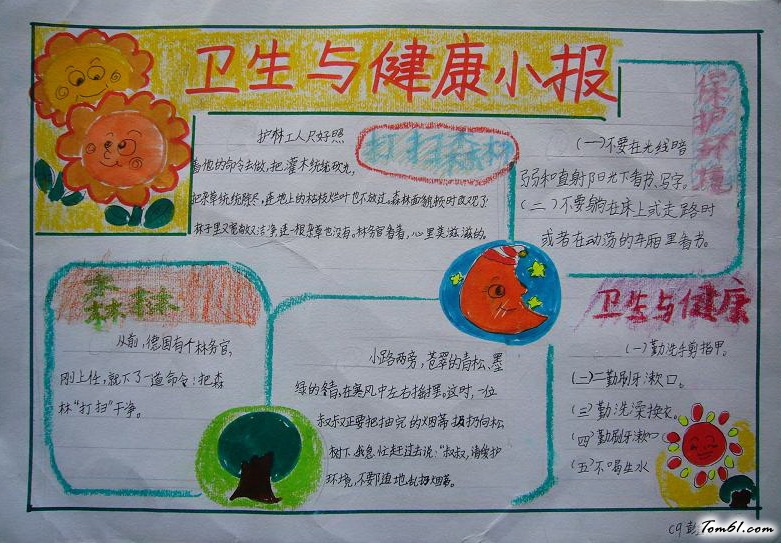 卫生与健康小报
打扫森林
护林工人只好照
着他的命令去做,把灌木统统砍光,
把杂草统统除尽,连地上的枯枝烂叶也不放过。森林面貌顿时改观了
林子里又宽敞又洁净,连一根杂草也没有。林务官看着,心里美滋滋的。
保护环境
(一)不要在光线暗
弱和直射阳光下看书、写字。
(二)不要躺在床上或走路时
或者在动荡的车厢里看书。
从前,德国有个林务官,
刚上任,就下了一道命令:把森
林“打扫”干净。
小路两旁,苍翠的青松、墨
绿的冬青,在寒风中左右摇摆。这时,一位
叔叔正要把抽完的烟蒂
树下,我急忙赶过去说:“叔叔,请爱护
环境,不要随地乱扔烟蒂。
卫生与健康
(一)勤洗手剪指甲。
(二)二勤刷牙漱口。
(三)勤洗澡换衣。
(四)勤刷牙漱口
(五)不喝生水
Tom61.com